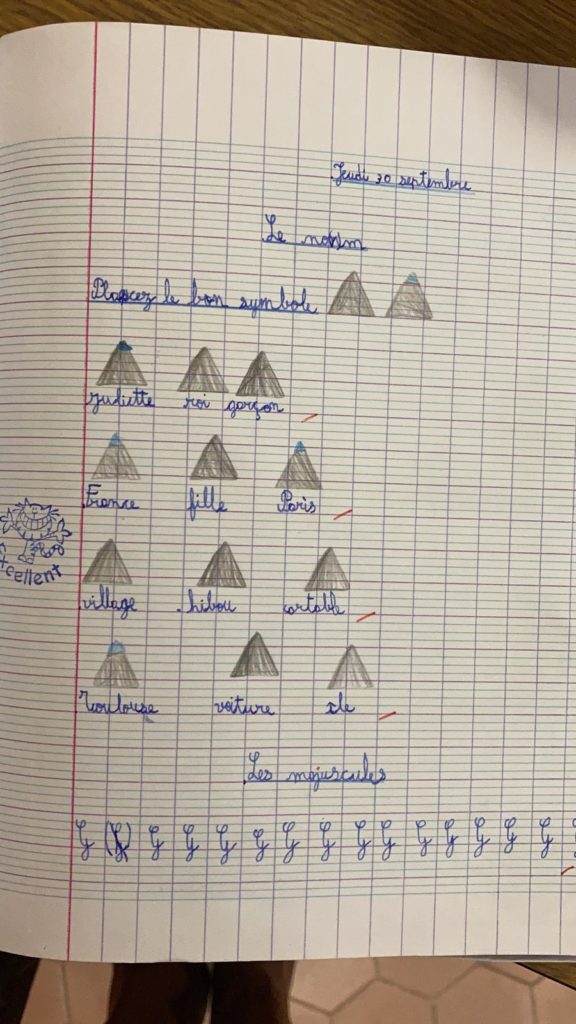 Jeudi 30 septembre
Le nom
Placez le bon symbole
Juliette roi garçon
France fille Paris
village hibou cartable
Excellent
Toulouse voiture île
Les majuscules
G G G G G G G G G G G G G G G